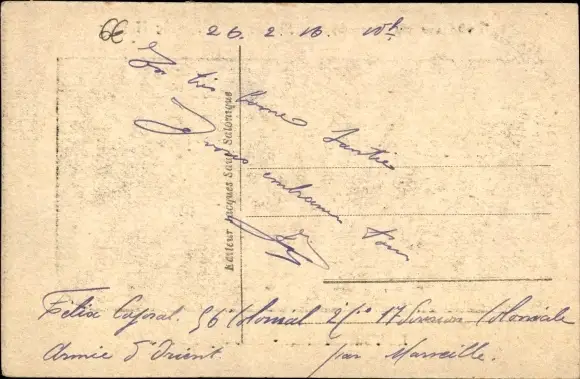 6€
26. 2. 16. 10h
En très bonne Santée
Je vous embrasse tous
Editeur Jacques Saul Salonique
Félix Caporal. 56 Colonial 2 Cie 17 Division Coloniale
Armée d'Orient par Marseille.